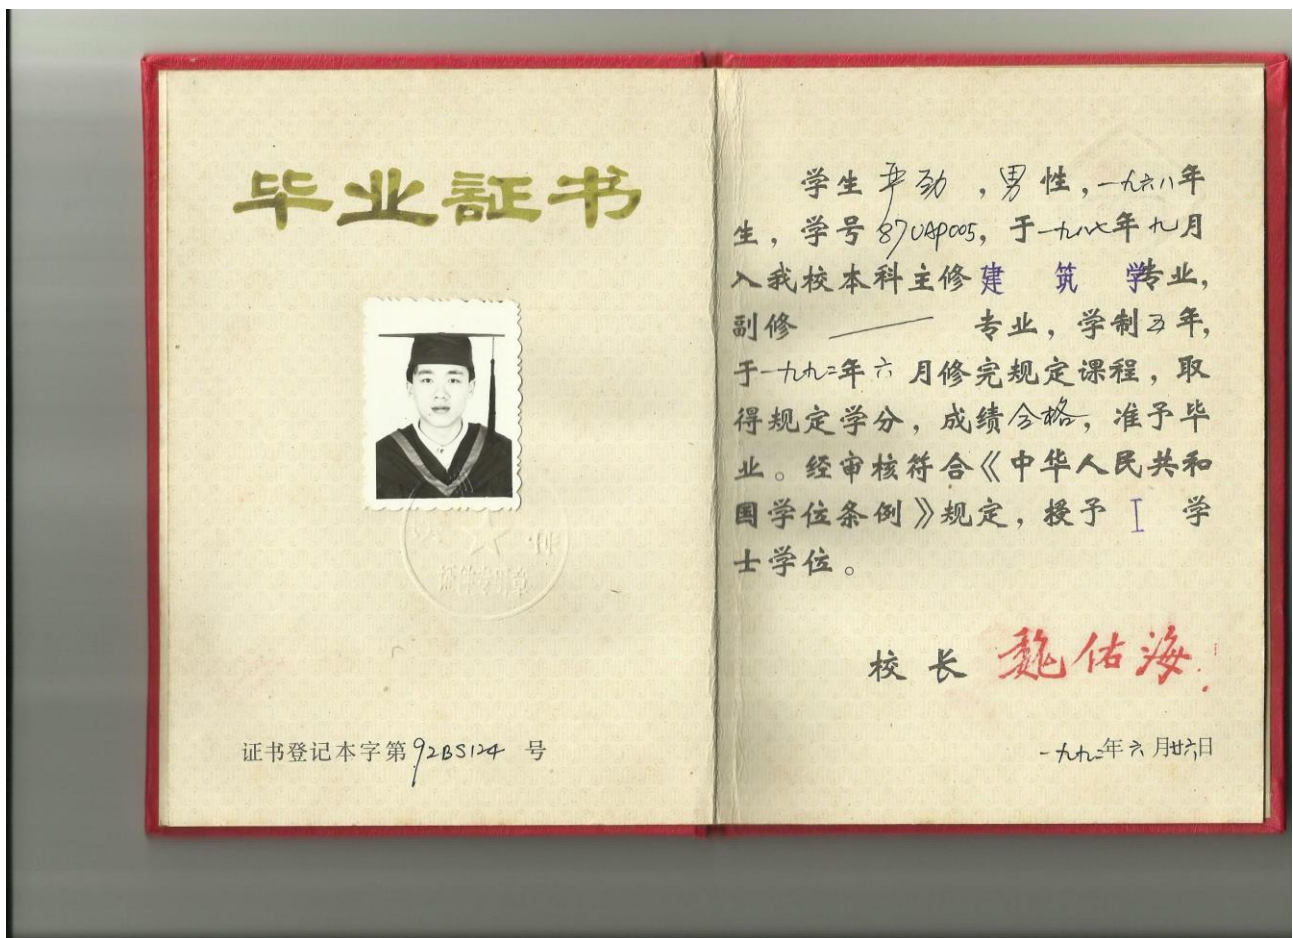 毕业証书
证书登记本字第92BS124 号
学生严劲,男性,一九六八年
生,学号87UAP005,于一九八七年九月
入我校本科主修建筑学专业,
副修 —— 专业,学制五年,
于一九九二年六月修完规定课程,取
得规定学分,成绩合格,准予毕
业。经审核符合《中华人民共和
国学位条例》规定,授予工学
士学位。
校长 魏佑海
一九九二年六月廿六日